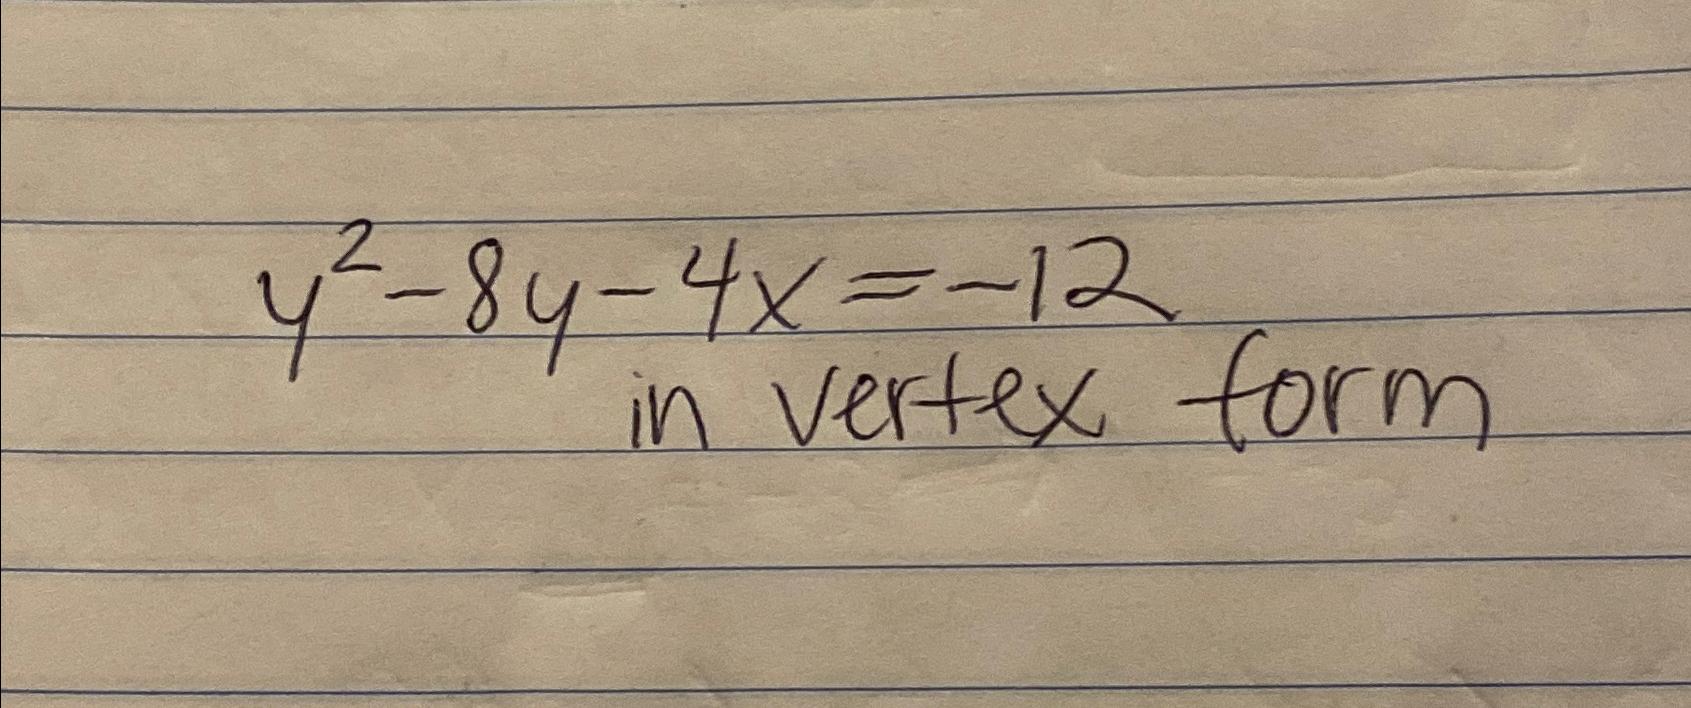 y²-8y-4x=-12
in vertex form